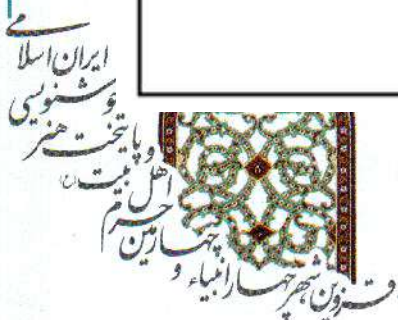 قزوین شهر چهار انبیاء و
چهارمین
حرم
اهل بیت (ع)
و پایتخت هنر
خوشنویسی
ایران اسلامی